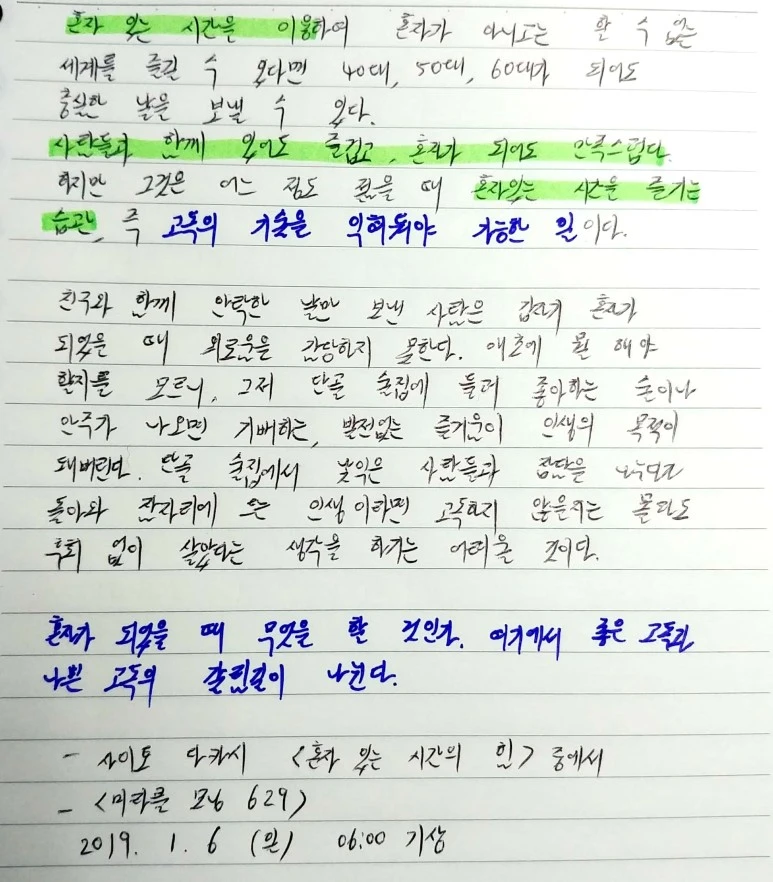 혼자 있는 시간을 이용하여 혼자가 아니고는 할 수 없는
세계를 즐길 수 있다면 40대, 50대, 60대가 되어도
충실한 날을 보낼 수 있다.
사람들과 함께 있어도 즐겁고, 혼자가 되어도 만족스럽다.
하지만 그것은 어느 정도 젊을 때 혼자있는 시간을 즐기는
습관, 즉 고독의 기술을 익혀둬야 가능한 일이다.
친구와 함께 안락한 날만 보낸 사람은 갑자기 혼자가
되었을 때 외로움을 감당하지 못한다. 애초에 뭘 해야
할지를 모르니, 그저 단골 술집에 들러 좋아하는 술이나
안주가 나오면 기뻐하는, 발전없는 즐거움이 인생의 목적이
돼버린다. 단골 술집에서 낯익은 사람들과 잡담을 나누다
돌아와 잠자리에 드는 인생이라면 고독하지 않을지는 몰라도
후회 없이 살았다는 생각을 하기는 어려울 것이다.
혼자가 되었을 때 무엇을 할 것인가. 여기에서 좋은 고독과
나쁜 고독의 갈림길이 나뉜다.
- 사이토 다카시 <혼자 있는 시간의 힘> 중에서
- <미라클 모닝 629>
2019. 1. 6 (일) 06:00 기상